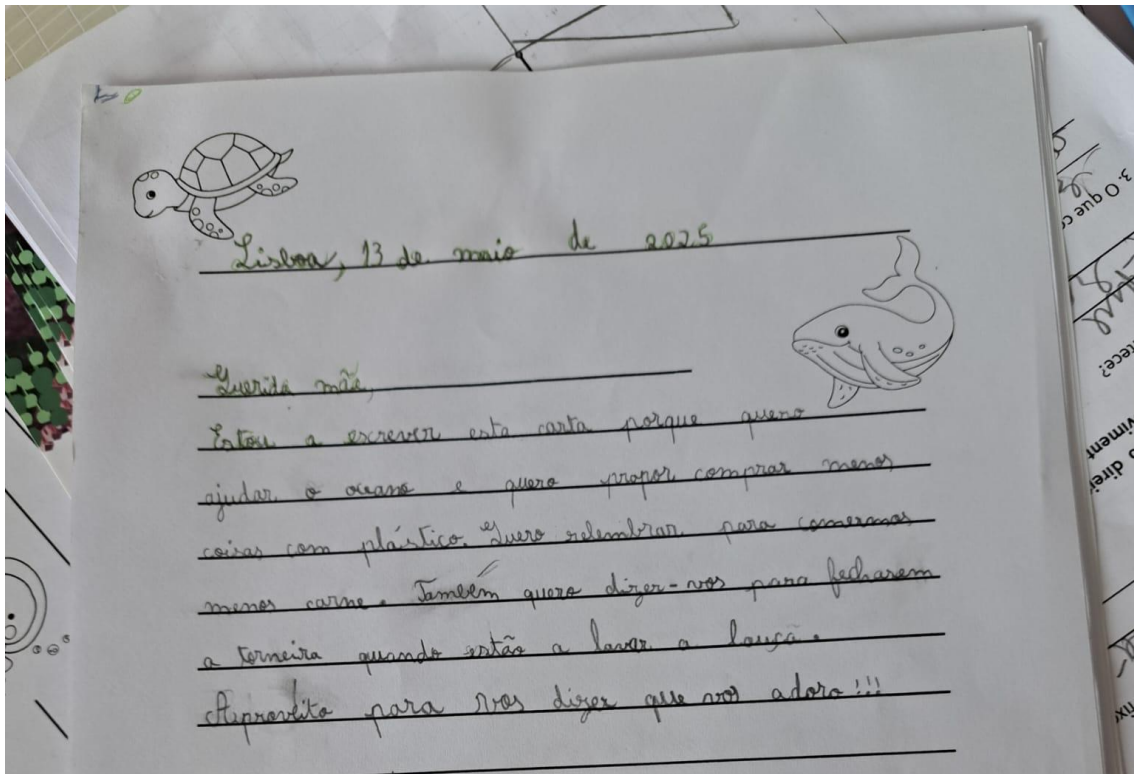 Lisboa, 13 de maio de 2025
Querida mãe,
Estou a escrever esta carta porque quero
ajudar o oceano e quero propor comprar menos
coisas com plástico. Quero relembrar para comermos
menos carne. Também quero dizer-vos para fecharem
a torneira quando estão a lavar a louça.
Aproveito para vos dizer que vos adoro!!!
3. O que co
tece?
viment
s direi